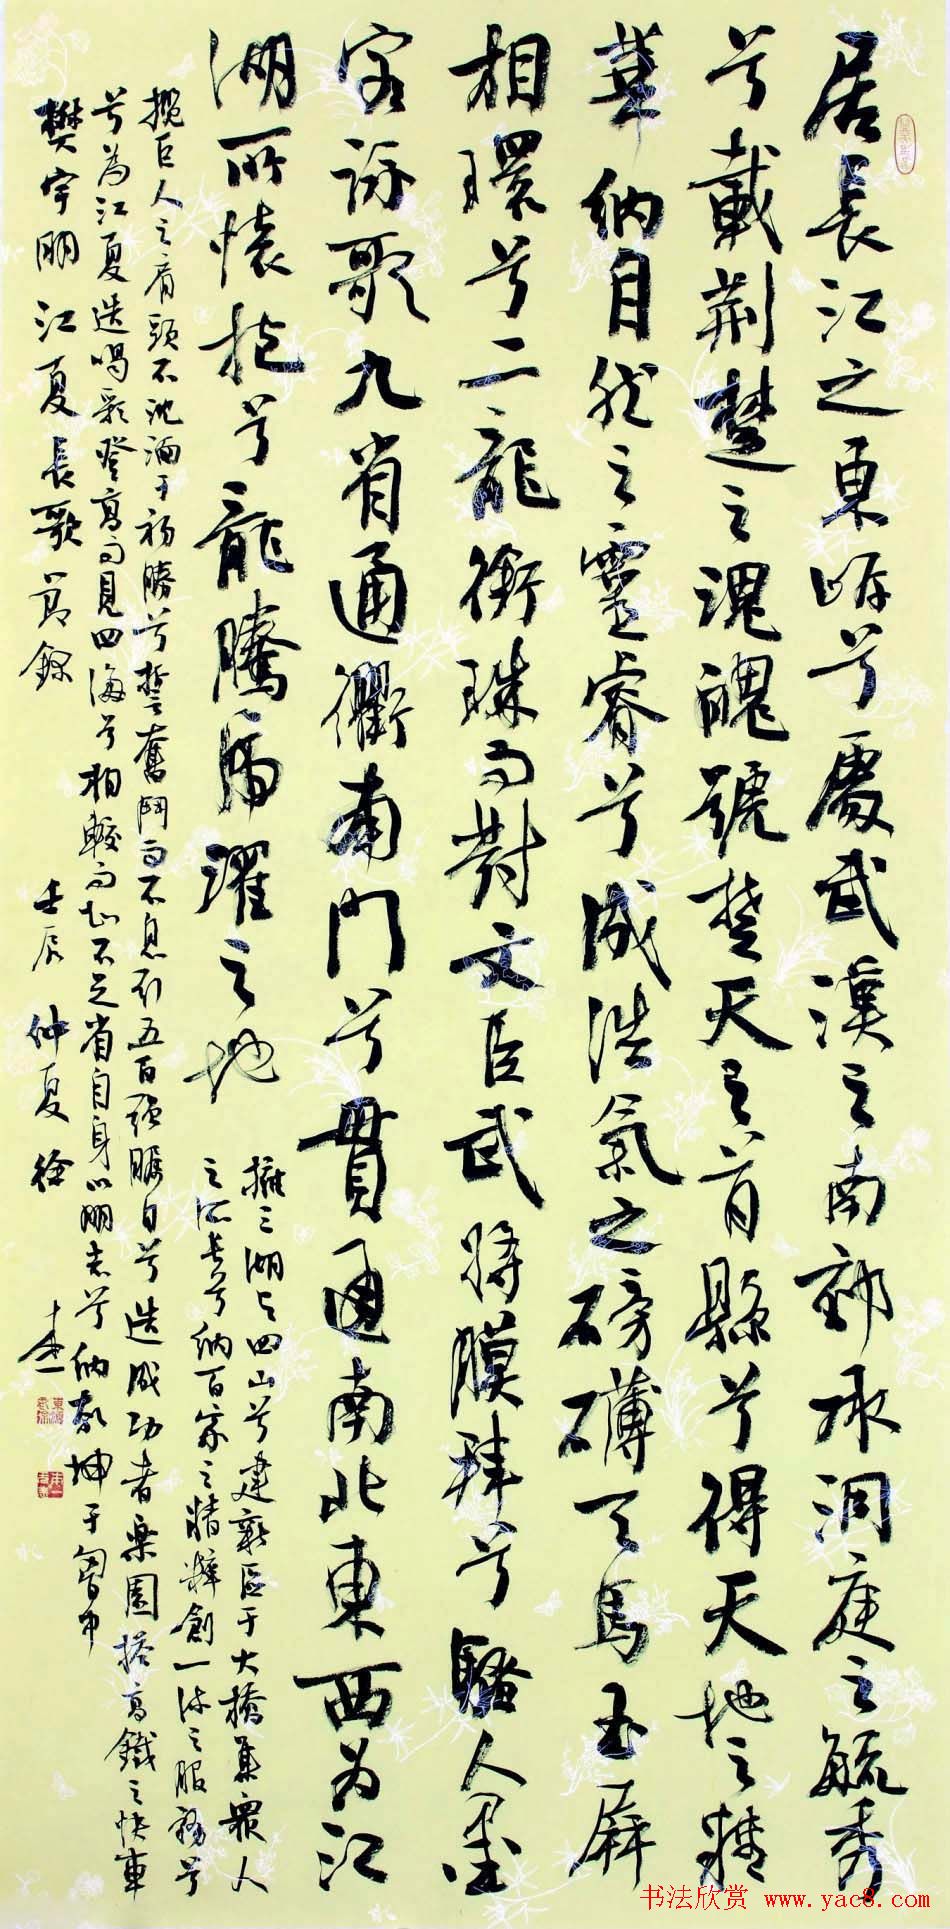 居長江之東岸兮處武漢之南部承洞庭之毓秀
兮載荊楚之瑰魄號楚天之首縣兮得天地之精
華納自然之靈睿兮成浩氣之磅礴天馬玉屏
相環兮二龍銜珠而對文臣武將膜拜兮騷人墨
客詠歌九省通衢南門兮貫通南北東西為江
湖所懷抱兮龍騰虎躍之地
擁三湖與四山兮建新區于大橋集眾人
之所長兮納百家之精粹創一流之服務兮
攬巨人之肩頭不沉湎于初勝兮誓奮鬥而不息列五百強驕日兮造成功者樂園搭高鐵之快車
兮為江夏迭喝彩登高而見四海兮相較而知不足省自身以明志兮納乾坤于胸中
樊宇朋江夏長歌節錄 壬辰仲夏徐
书法欣赏 www.yac8.com